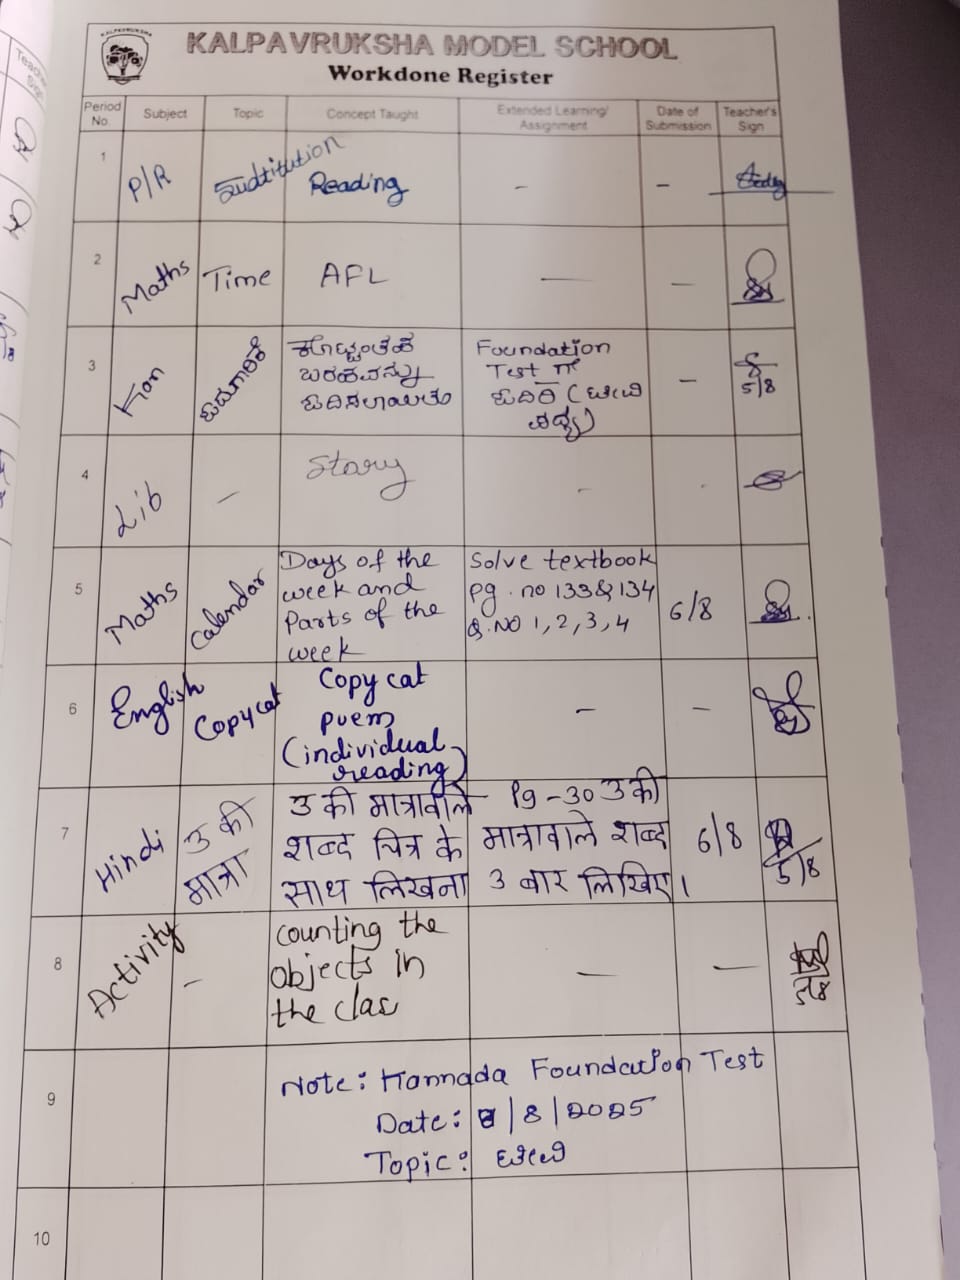 KALPAVRUKSHA MODEL SCHOOL
Workdone Register
Period No. Subject Topic Concept Taught Extended Learning/ Assignment Date of Submission Teacher's Sign
1 P/R Reading - -
2 Maths Time AFL — -
3 Kan
ಬರಹವನ್ನು
Foundation
Test ಗೆ
ಓದಿರಿ
- 5/8
4 Lib - Story - -
5 Maths Calendar
Days of the
week and
Parts of the
week
Solve textbook
pg. no 133 & 134
Q.NO 1, 2, 3, 4
6/8
6 English Copycat
Copy cat
puem
(individual
reading)
- -
7 Hindi
उ की
मात्रा
उ की मात्रावाले
शब्द चित्र के
साथ लिखना
Pg-30 उ की
मात्रावाले शब्द
3 बार लिखिए।
6/8
5/8
8 Activity -
counting the
objects in
the clas
— —
9
Note: Kannada Foundation Test
Date: /8/2025
Topic:
10